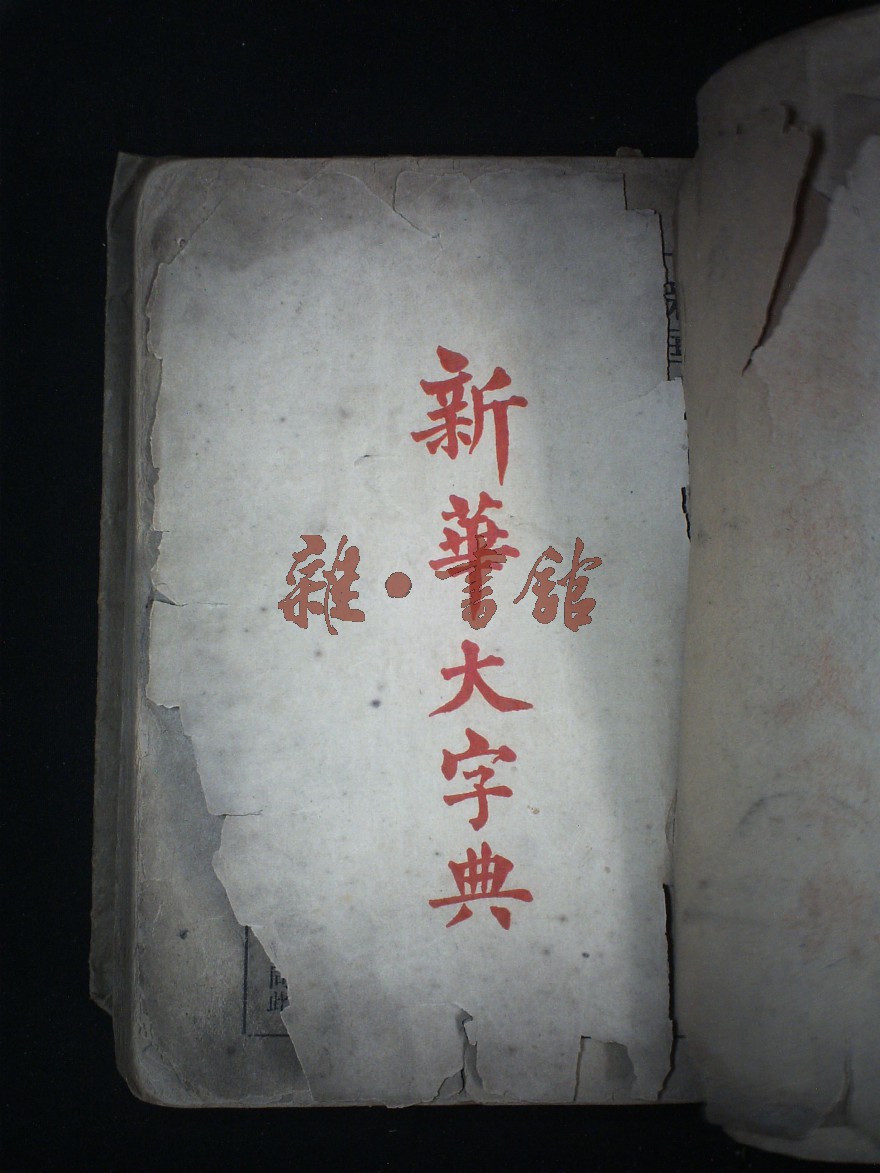 新華大字典
雜·書館